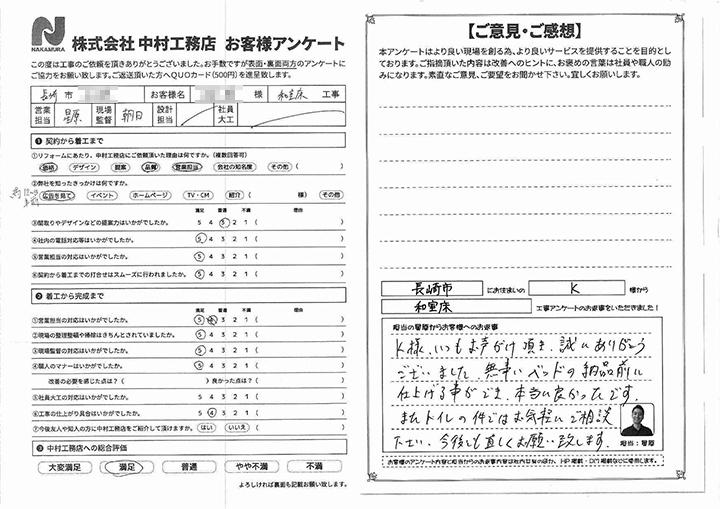 NAKAMURA
株式会社 中村工務店 お客様アンケート
この度は工事のご依頼を頂きありがとうございました。お手数ですが表面・裏面両方のアンケートに
ご協力をお願い致します。ご返送頂いた方へQUOカード(500円)を進呈致します。
長崎 市 お客様名 様 和室床 工事
営業担当 星原 現場監督 朝日 設計担当 社員大工
❶ 契約から着工まで
①リフォームにあたり、中村工務店にご依頼頂いた理由は何ですか。(複数回答可)
価格 デザイン 提案 品質 営業担当 会社の知名度 その他 ( )
②弊社を知ったきっかけは何ですか。
広告を見て イベント ホームページ TV・CM 紹介 ( 様) その他
満足 普通 不満 理由
③間取りやデザインなどの提案力はいかがでしたか。 5 4 3 2 1 ( )
④社内の電話対応等はいかがでしたか。 5 4 3 2 1 ( )
⑤営業担当の対応はいかがでしたか。 5 4 3 2 1 ( )
⑥契約から着工までの打合せはスムーズに行われましたか。 5 4 3 2 1 ( )
❷ 着工から完成まで
満足 普通 不満 理由
①営業担当の対応はいかがでしたか。 5 4 3 2 1 ( )
②現場の整理整頓や掃除はきちんとされていましたか。 5 4 3 2 1 ( )
③現場監督の対応はいかがでしたか。 5 4 3 2 1 ( )
④職人のマナーはいかがでしたか。 5 4 3 2 1 ( )
改善の必要を感じた点は?( )良かった点は?( )
⑤社員大工の対応はいかがでしたか。 5 4 3 2 1 ( )
⑥工事の仕上がり具合はいかがでしたか。 5 4 3 2 1 ( )
⑦今後友人や知人の方に中村工務店をご紹介して頂けますか。 はい いいえ ( )
❸ 中村工務店への総合評価
大変満足 満足 普通 やや不満 不満
よろしければ裏面も記載お願い致します。
【ご意見・ご感想】
本アンケートはより良い現場を創る為、より良いサービスを提供することを目的と
しております。ご指摘頂いた内容は改善へのヒントに、お褒めの言葉は社員や職人の励
みになります。素直なご意見、ご要望をお聞かせ下さい。宜しくお願いします。
長崎市 にお住まいの K 様から
和室床 工事アンケートのお返事をいただきました!
担当の星原からお客様へのお返事
K様、いつもお声がけ頂き、誠にありがとう
ございました。無事にベッドの納品前に
仕上げる事ができ、本当に良かったです。
またトイレの件ではお気軽にご相談
下さい。今後も宜しくお願い致します。
担当:星原
お客様のアンケート内容と担当からのお返事内容は社内共有のほか、HP掲載・DM掲載などに使用します。